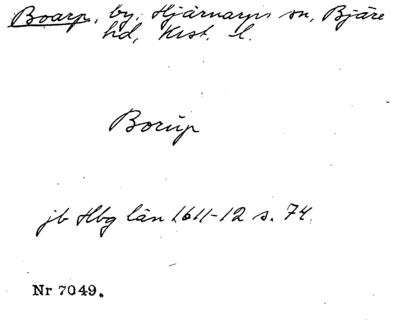 Boarp, by, Hjärnarps sn, Bjäre
hd, Krist. l.
Borup
jb Hbg län 1611-12 s. 74.
Nr 7049.